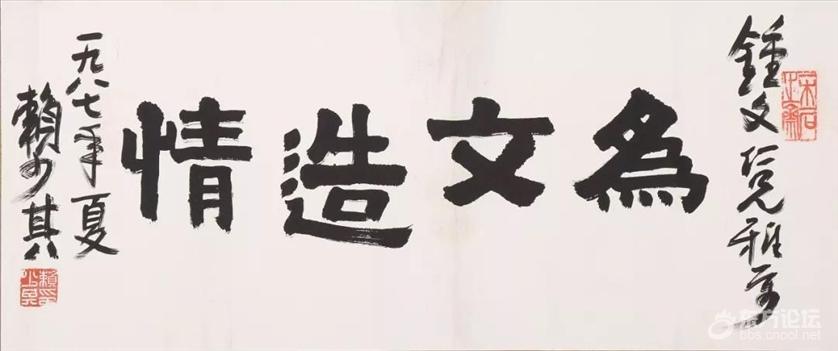 鍾文仁兄雅屬
為文造情
一九八七年夏
賴少其
东方论坛
bbs.cnool.net